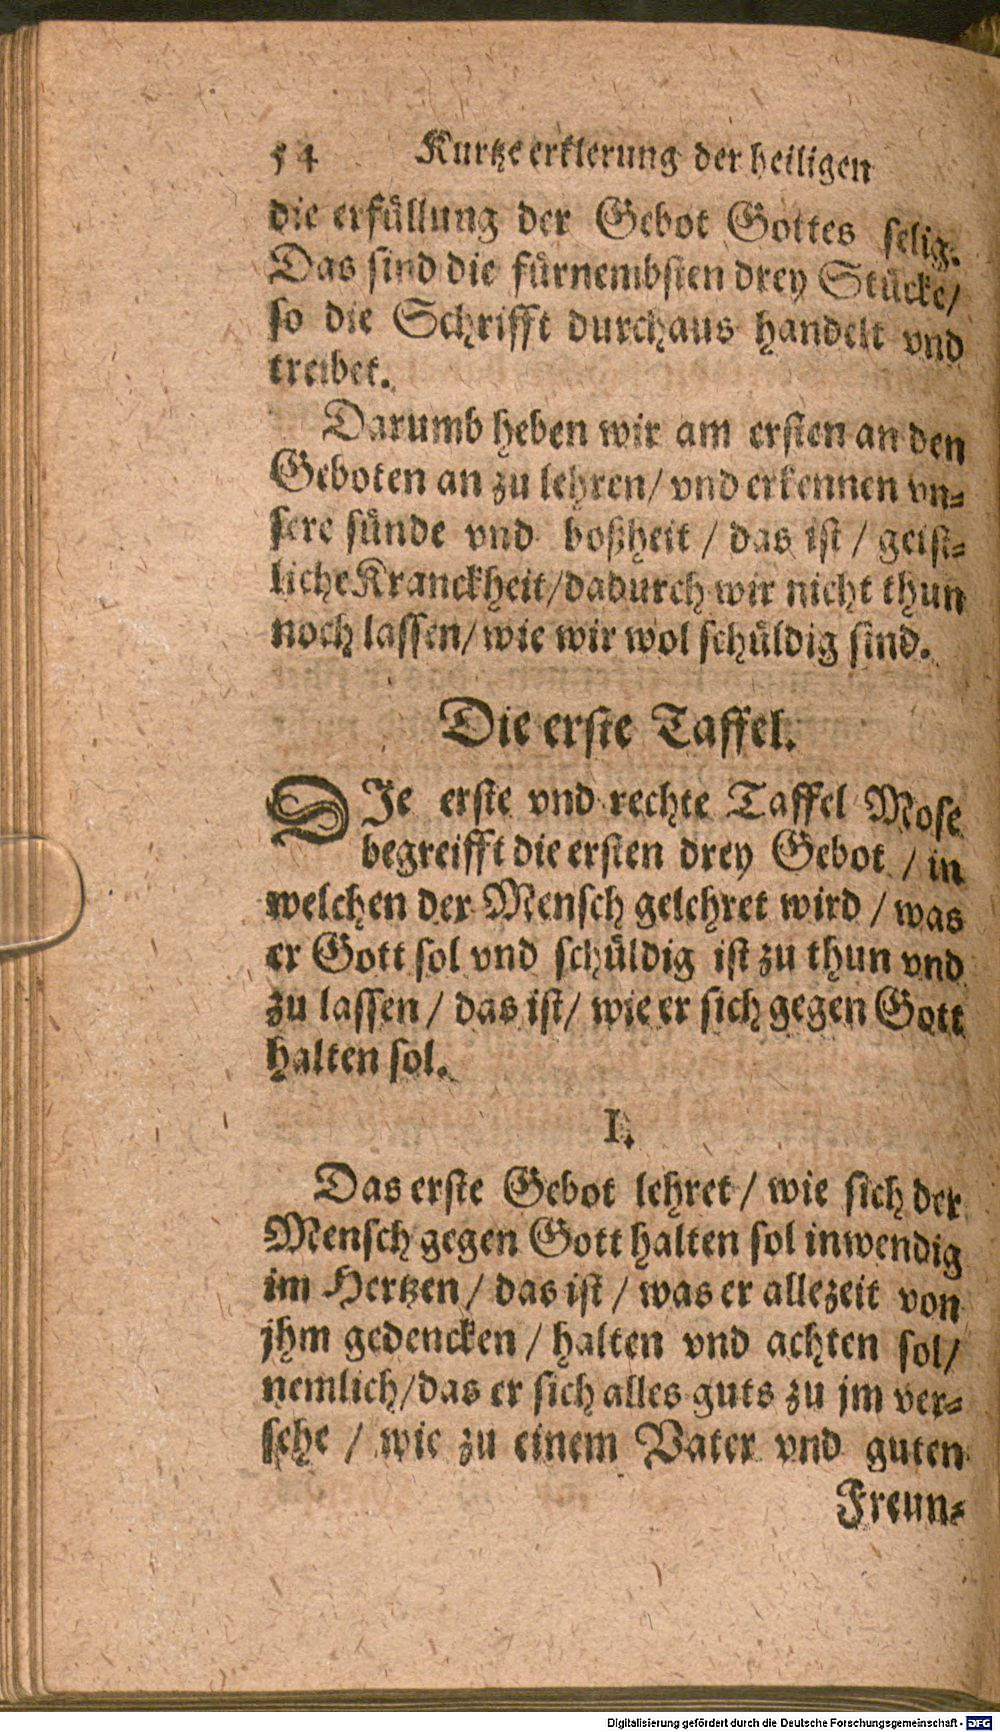 54 Kurtze erklerung der heiligen
die erfüllung der Gebot Gottes selig.
Das sind die fürnembsten drey Stücke/
so die Schrifft durchaus handelt vnd
treibet.
Darumb heben wir am ersten an den
Geboten an zu lehren/ vnd erkennen vn-
sere sünde vnd boßheit / das ist / geist-
liche Kranckheit/ dadurch wir nicht thun
noch lassen/ wie wir wol schüldig sind.
Die erste Taffel.
DIe erste vnd rechte Taffel Mose
begreifft die ersten drey Gebot / in
welchen der Mensch gelehret wird / was
er Gott sol vnd schüldig ist zu thun vnd
zu lassen / das ist/ wie er sich gegen Gott
halten sol.
I.
Das erste Gebot lehret / wie sich der
Mensch gegen Gott halten sol inwendig
im Hertzen / das ist / was er allezeit von
jhm gedencken / halten vnd achten sol/
nemlich/ das er sich alles guts zu jm ver-
sehe / wie zu einem Vater vnd guten
Freun-
Digitalisierung gefördert durch die Deutsche Forschungsgemeinschaft - DFG